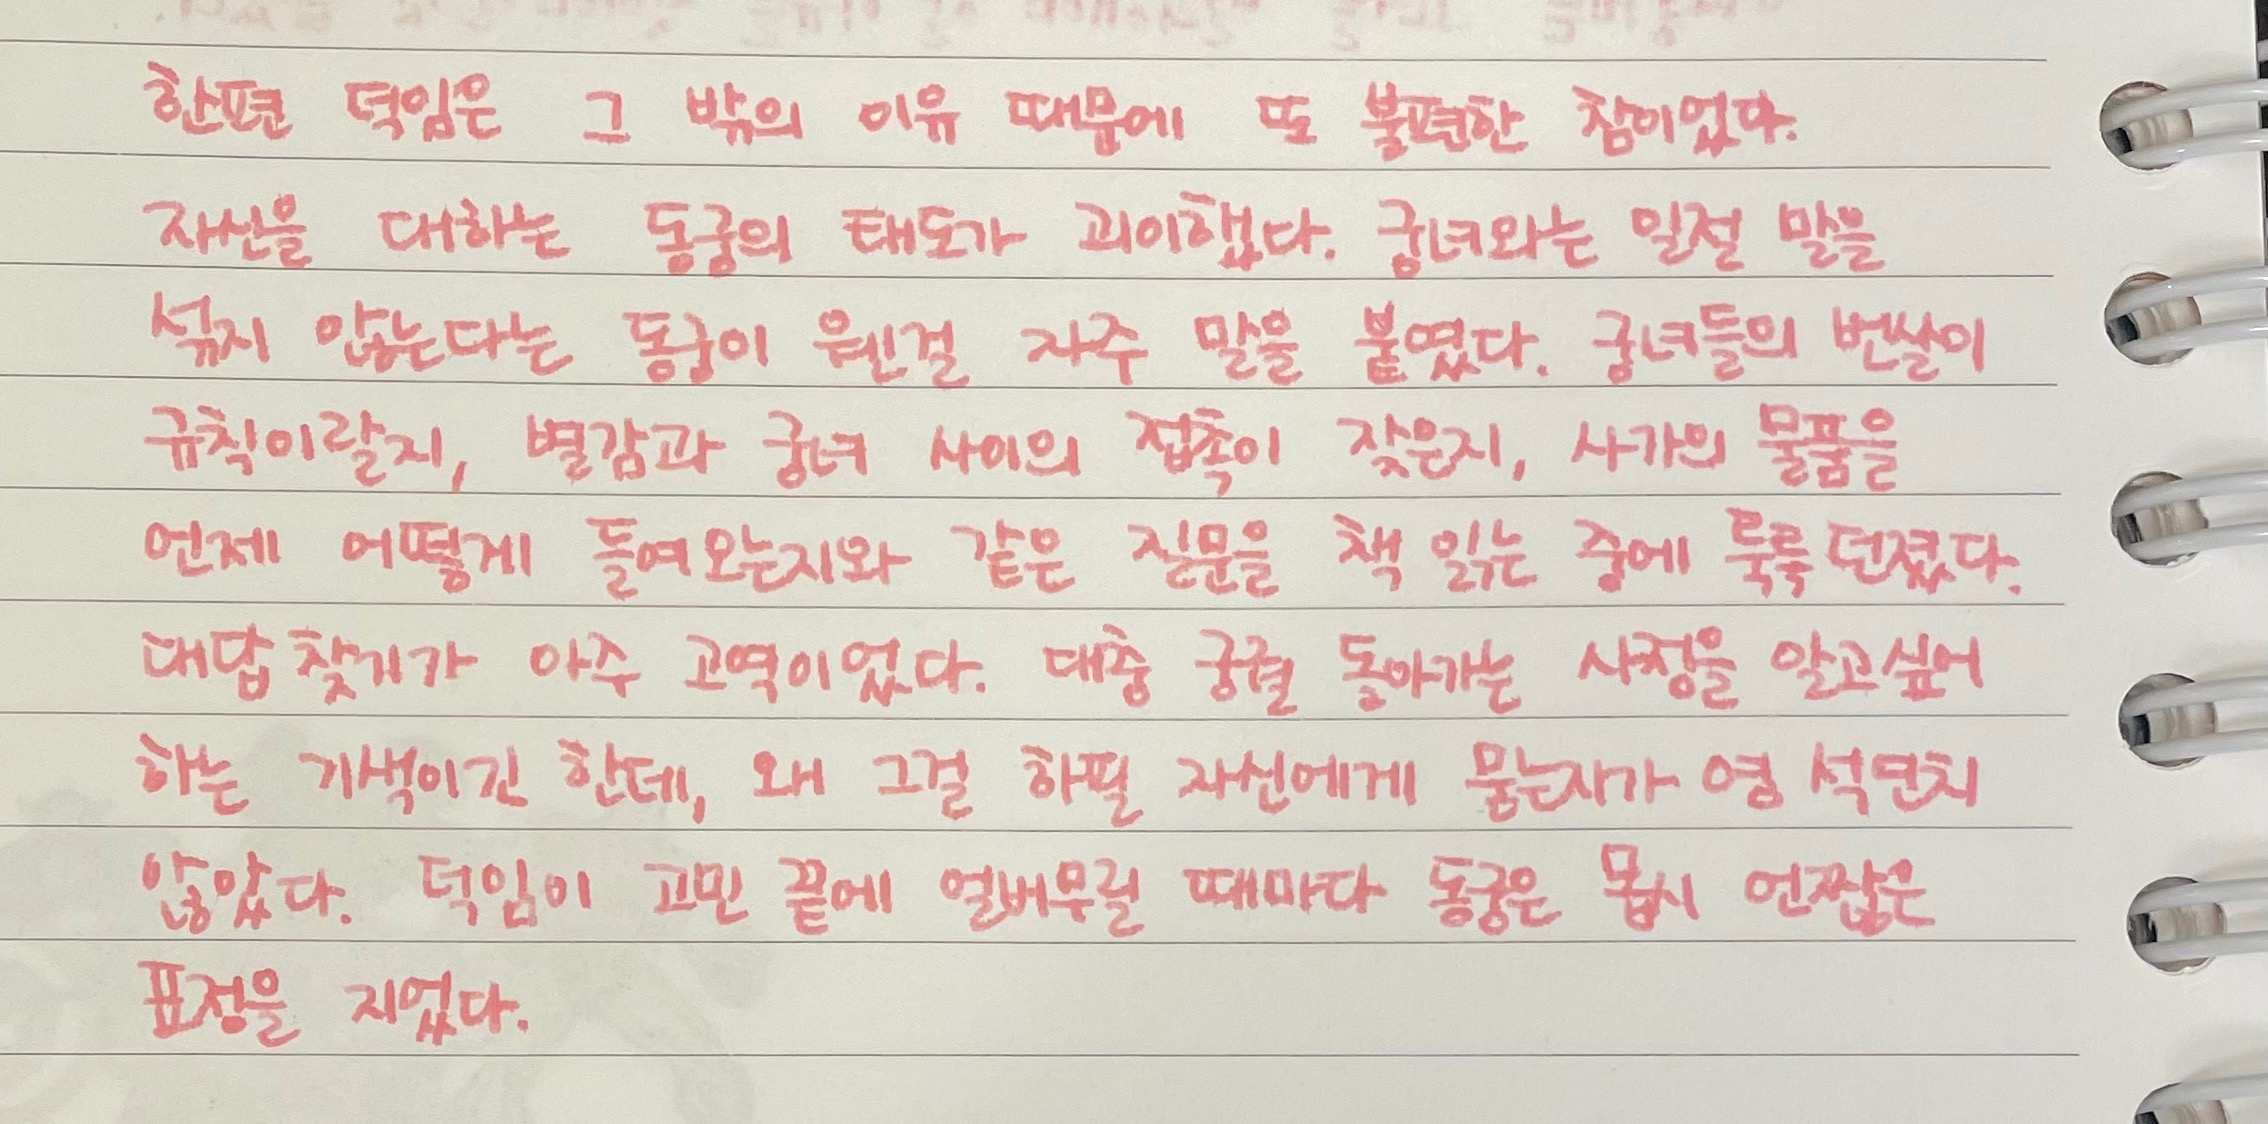 한편 덕임은 그 밖의 이유 때문에 또 불편한 참이었다.
자신을 대하는 동궁의 태도가 괴이했다. 궁녀와는 일절 말을
섞지 않는다는 동궁이 웬걸 자주 말을 붙였다. 궁녀들의 번살이
규칙이랄지, 별감과 궁녀 사이의 접촉이 잦은지, 사가의 물품을
언제 어떻게 들여오는지와 같은 질문을 책 읽는 중에 툭툭 던졌다.
대답 찾기가 아주 고역이었다. 대충 궁궐 돌아가는 사정을 알고싶어
하는 기색이긴 한데, 왜 그걸 하필 자신에게 묻는지가 영 석연치
않았다. 덕임이 고민 끝에 얼버무릴 때마다 동궁은 몹시 언짢은
표정을 지었다.